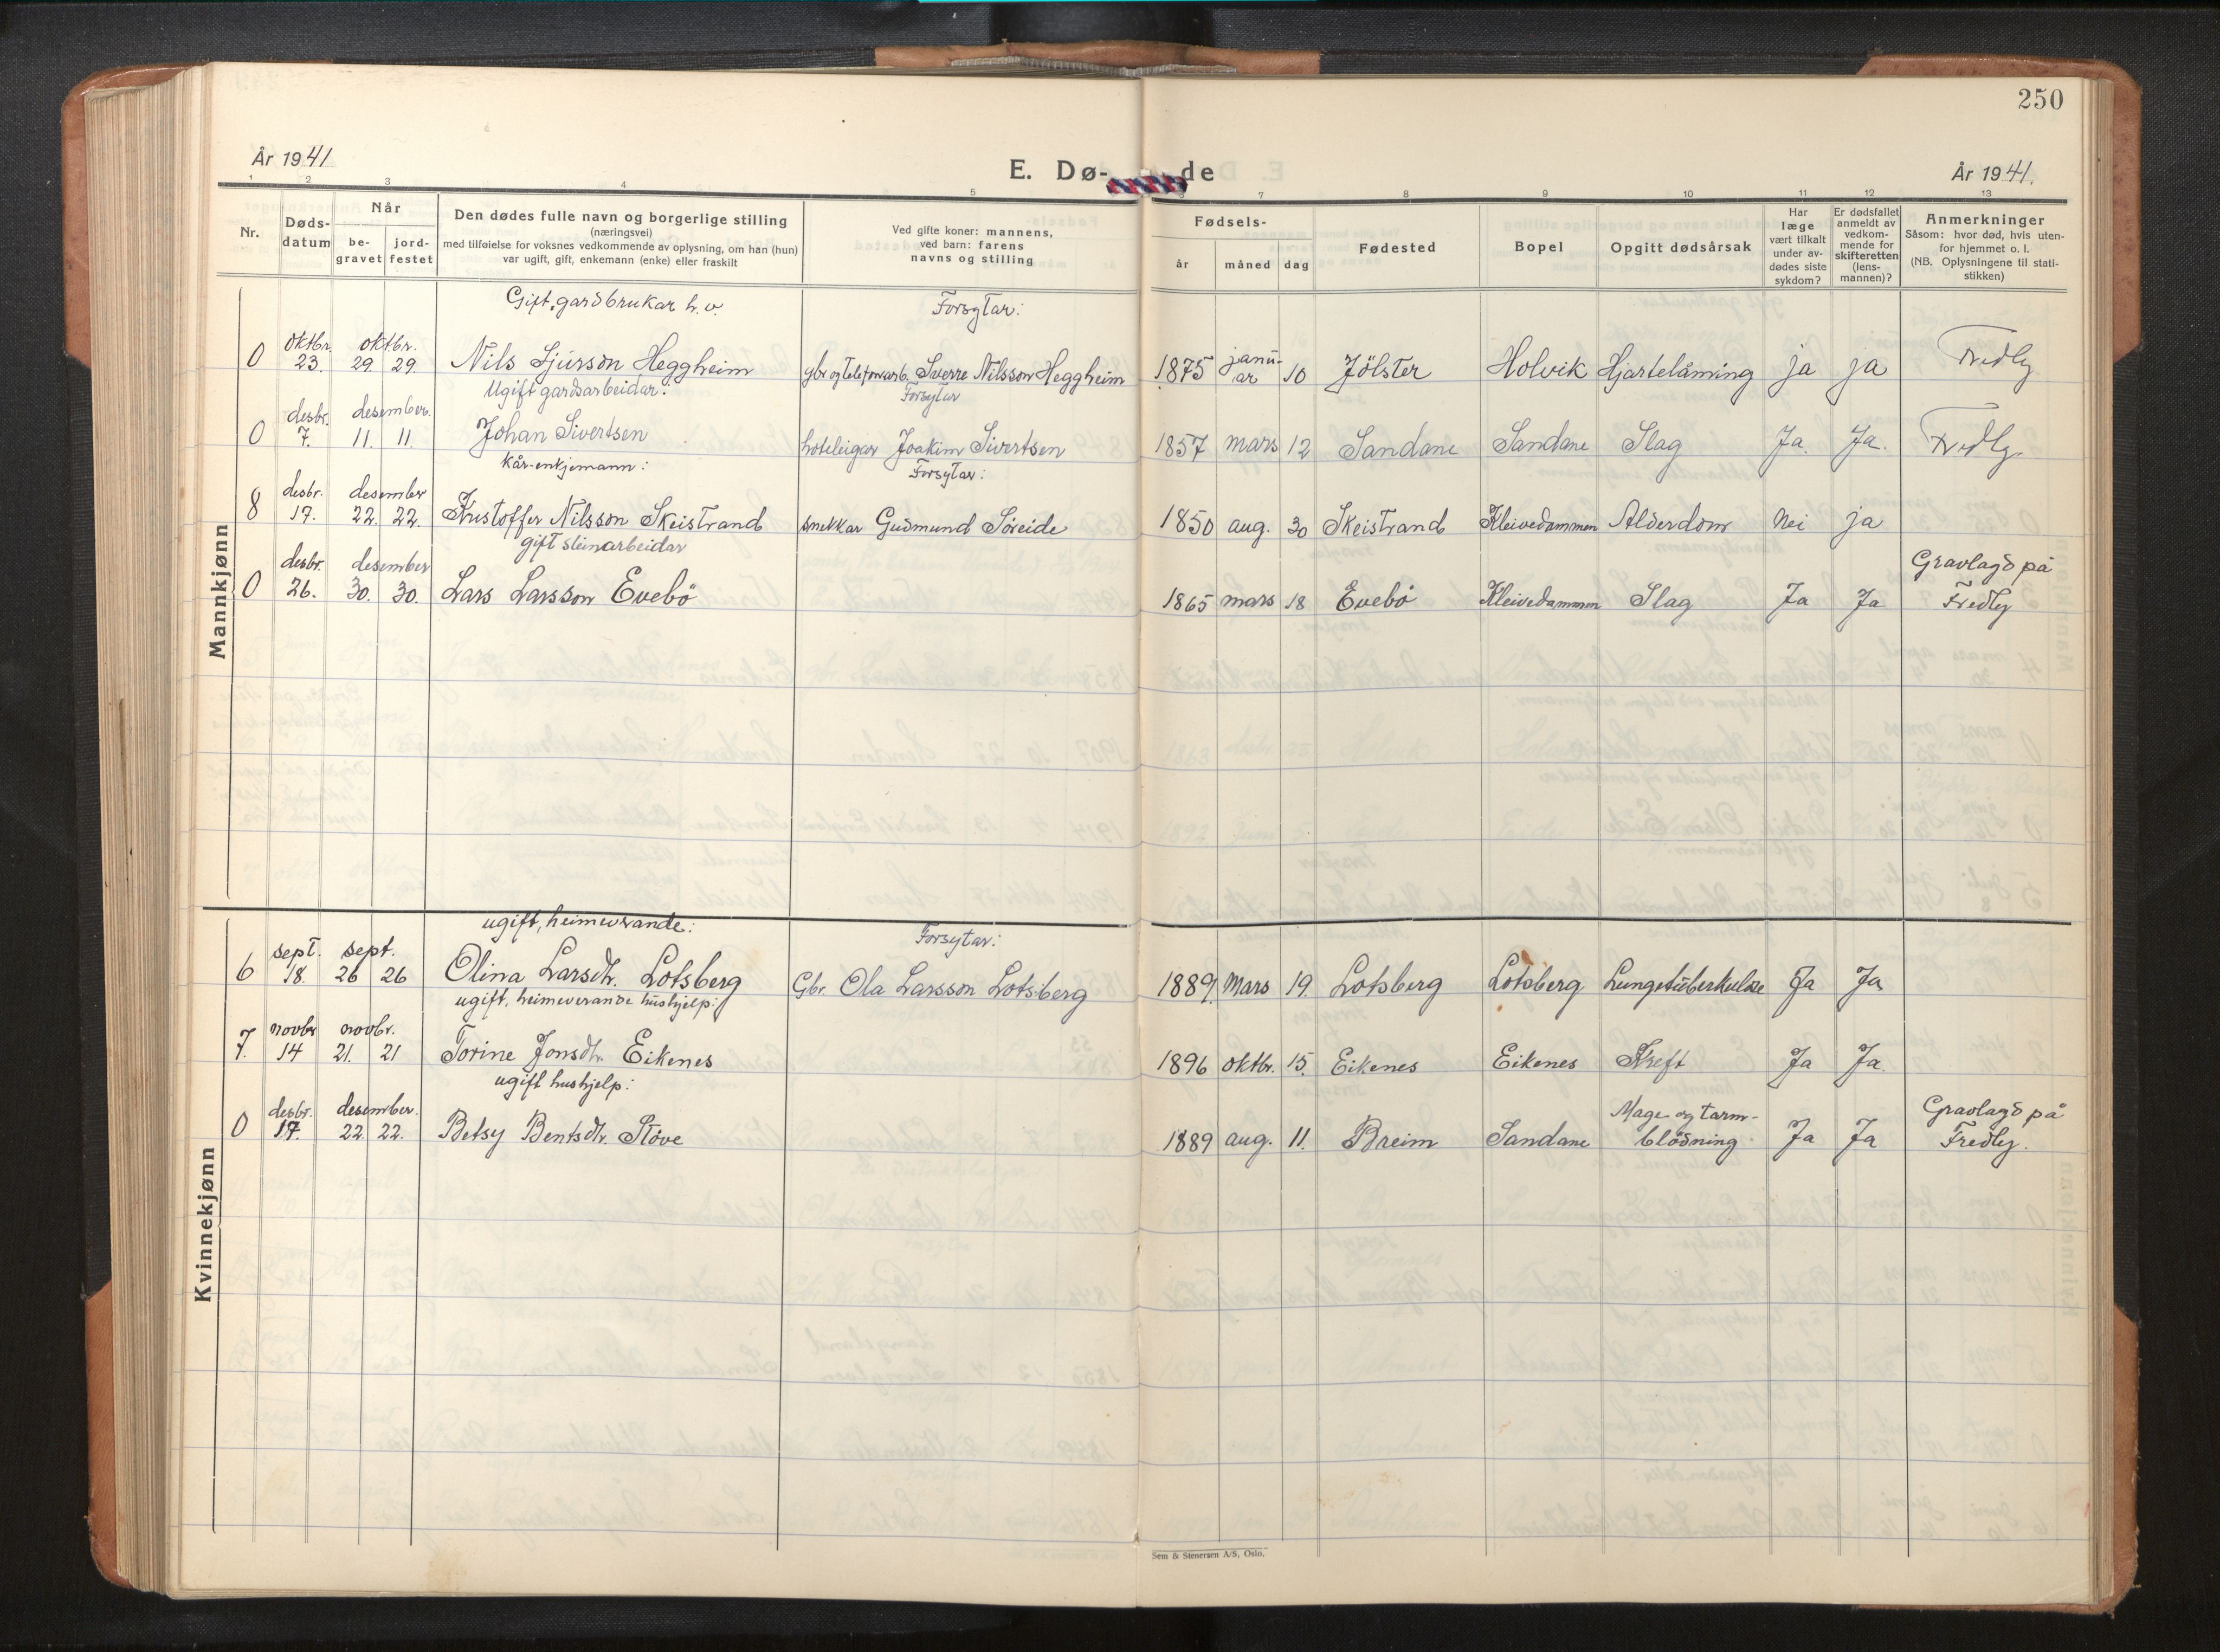 250
År 1941
E. Dø-
de
År 1941.
1 2 3 4 5 6 7 8 9 10 11 12 13
Nr.
Døds-
datum
Når
be-
gravet
jord-
festet
Den dødes fulle navn og borgerlige stilling
(næringsvei)
med tilføielse for voksnes vedkommende av oplysning, om han (hun)
var ugift, gift, enkemann (enke) eller fraskilt
Ved gifte koner: mannens,
ved barn: farens
navns og stilling
Fødsels-
år måned dag
Fødested
Bopel
Opgitt dødsårsak
Har
læge
vært tilkalt
under av-
dødes siste
sykdom?
Er dødsfallet
anmeldt av
vedkom-
mende for
skifteretten
(lens-
mannen)?
Anmerkninger
Såsom: hvor død, hvis uten-
for hjemmet o. l.
(NB. Oplysningene til stati-
stikken)
Mannkjønn
Gift, gardbrukar h.v. Forsytar:
oktbr. oktbr. janu-
0 23. 29 29 Nils Sjurson Heggheim gbr og telefonarb. Sverre Nilsson Heggheim 1875 ar 10 Jölster Holvik Hjartelåming ja ja Fredly
Ugift gardsarbeidar: Forsytar
desbr. desember.
0 7. 11. 11. Johan Sivertsen hoteleigar Joakim Sivertsen 1857 mars 12 Sandane Sandane Slag Ja. Ja. Fredly.
Kår-enkjemann: Forsytar:
desbr. desember
8 17. 22. 22. Kristoffer Nilsson Skeistrand snekkar Gudmund Söreide 1850 aug. 30 Skeistrand Kleivedammen Alderdom Nei ja
gift steinarbeidar
desbr. desember Gravlagd på
0 26. 30. 30. Lars Larsson Evebö 1865 mars 18 Evebö Kleivedammen Slag Ja Ja Fredly
Kvinnekjønn
ugift, heimeverande: Forsytar:
sept. sept.
6 18. 26 26 Olina Larsdtr. Lotsberg Gbr. Ola Larsson Lotsberg 1889. Mars 19. Lotsberg Lotsberg Lungetuberkulose Ja Ja
ugift, heimeverande hushjelp:
novbr novbr.
7. 14 21. 21 Torine Jonsdtr. Eikenes 1896 oktbr. 15. Eikenes Eikenes Kreft Ja Ja
ugift hushjelp:
desbr. desember. Mage og tarm- Gravlagd på
0 17. 22. 22. Betsy Bentsdtr. Støve 1889 aug. 11. Breim Sandane blödning Ja Ja Fredly.
Sem & Stenersen A/S, Oslo.